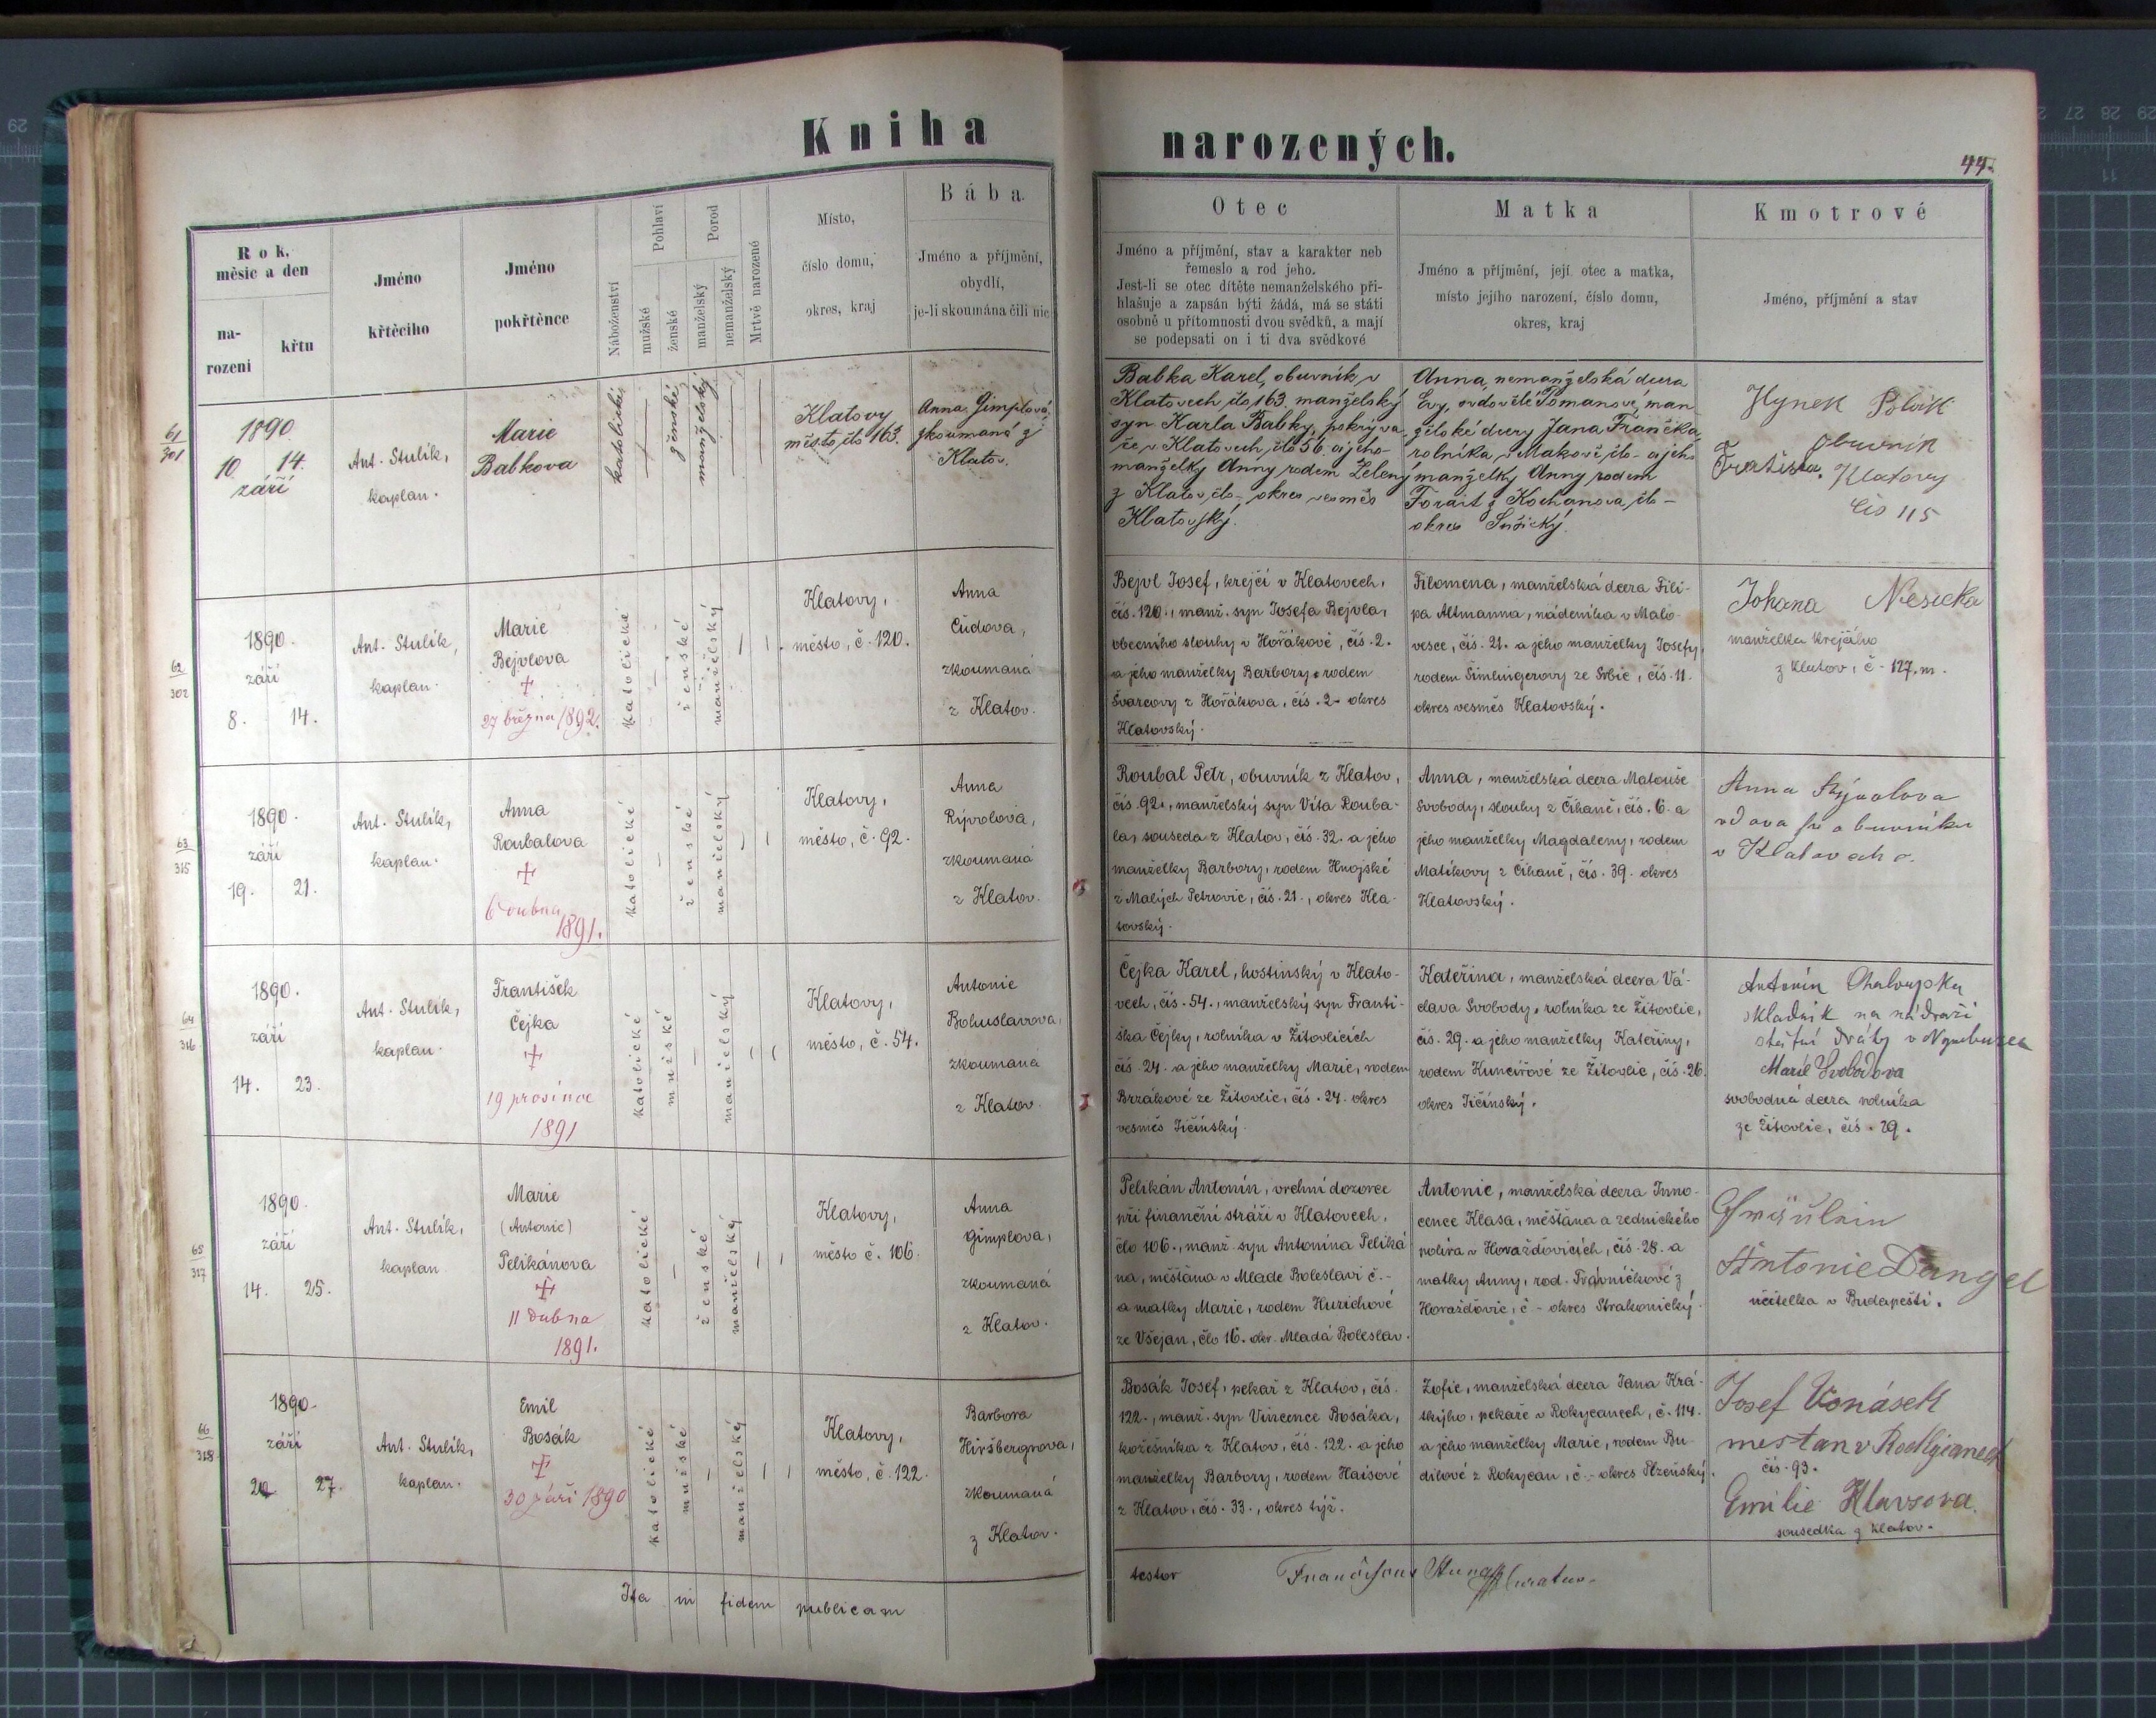 Kniha narozených.
44.
Rok, měsíc a den
na-
rození
křtu
Jméno
křtěcího
Jméno
pokřtěnce
Náboženství
Pohlaví
mužské
ženské
Porod
manželský
nemanželský
Mrtvě narozené
Místo,
číslo domu,
okres, kraj
Bába.
Jméno a příjmění,
obydlí,
je-li skoumána čili nic
Otec
Jméno a příjmění, stav a karakter neb
řemeslo a rod jeho.
Jest-li se otec dítěte nemanželského při-
hlašuje a zapsán býti žádá, má se státi
osobně u přítomnosti dvou svědků, a mají
se podepsati on i ti dva svědkové
Matka
Jméno a příjmění, její otec a matka,
místo jejího narození, číslo domu,
okres, kraj
Kmotrové
Jméno, příjmění a stav
61
301
1890.
10. 14.
září
Ant. Stulík,
kaplan.
Marie
Babkova
katolické
ženské
manželský
Klatovy
město, člo 163.
Anna Gimplová,
zkoumaná z
Klatov.
Babka Karel, obuvník v
Klatovech, člo 163. manželský
syn Karla Babky, pokrýva-
če v Klatovech, člo 56. a jeho
manželky Anny rodem Zelený
z Klatov, člo -, okres vesměs
Klatovský.
Anna, nemanželská dcera
Evy, ovdovělé Tomanové, man-
želské dcery Jana Frančka,
rolníka v Makově, člo - a jeho
manželky Anny rodem
Forait z Kochanova, člo -
okres Sušický.
Hynek
obuvník
Klatovy
čís 115
62
302
1890.
září
8. 14.
Ant. Stulík,
kaplan.
Marie
Bejvlova
27 března 1892.
katolické
ženské
manželský
Klatovy,
město, č. 120.
Anna
Čudova,
zkoumaná
z Klatov.
Bejvl Josef, krejčí v Klatovech,
čís. 120., manž. syn Josefa Bejvla,
obecního slouhy v Hořákově, čís. 2.
a jeho manželky Barbory, rodem
Švarcovy z Hořákova, čís. 2. okres
Klatovský.
Filomena, manželská dcera Fili-
pa Altmanna, nádeníka v Malo-
vesce, čís. 21. a jeho manželky Josefy,
rodem Šimlingerovy ze Srbic, čís. 11.
okres vesměs Klatovský.
Johana Nesicka
manželka krejčího
z Klatov, č. 127, m.
63
315
1890.
září
19. 21.
Ant. Stulík,
kaplan.
Anna
Roubalova
6 dubna
1891.
katolické
ženské
manželský
Klatovy,
město, č. 92.
Anna
Rývolová,
zkoumaná
z Klatov.
Roubal Petr, obuvník z Klatov,
čís. 92., manželský syn Víta Rouba-
la, souseda z Klatov, čís. 32. a jeho
manželky Barbory, rodem Hnojské
z Malých Petrovic, čís. 21., okres Kla-
tovský.
Anna, manželská dcera Matouše
Svobody, slouhy z Číhaně, čís. 6. a
jeho manželky Magdaleny, rodem
Matíkovy z Číhaně, čís. 39. okres
Klatovský.
Anna
vdova po obuvníku
v Klatovech
64
316
1890.
září
14. 23.
Ant. Stulík,
kaplan.
František
Čejka
19 prosince
1891
katolické
mužské
manželský
Klatovy,
město, č. 54.
Antonie
Bohuslavova,
zkoumaná
z Klatov.
Čejka Karel, hostinský v Klato-
vech, čís. 54., manželský syn Franti-
ška Čejky, rolníka v Žitovlicích
čís. 24. a jeho manželky Marie, rodem
Brzákové ze Žitovlic, čís. 24. okres
vesměs Jičínský.
Kateřina, manželská dcera Vá-
clava Svobody, rolníka ze Žitovlic,
čís. 29. a jeho manželky Kateřiny,
rodem Kuncířové ze Žitovlic, čís. 26.
okres Jičínský.
Antonín
skladník na nádraží
státní dráhy v
Marie Svobodova
svobodná dcera rolníka
ze Žitovlic, čís. 29.
65
317
1890.
září
14. 25.
Ant. Stulík,
kaplan
Marie
(Antonie)
Pelikánova
11 dubna
1891.
katolické
ženské
manželský
Klatovy,
město č. 106.
Anna
Gimplova,
zkoumaná
z Klatov.
Pelikán Antonín, vrchní dozorce
při finanční stráži v Klatovech,
člo 106., manž. syn Antonína Peliká-
na, měšťana v Mladé Boleslavi č. -
a matky Marie, rodem Kuzichové
ze Všejan, člo 16. okr. Mladá Boleslav.
Antonie, manželská dcera Inno-
cence Klasa, měšťana a zednického
políra v Horažďovicích, čís. 28. a
matky Anny, rod. Trávníčkové z
Horažďovic, č - okres Strakonický.
Fräulein
Antonie Dangel
učitelka v Budapešti.
66
318
1890.
září
20 27.
Ant. Stulík,
kaplan.
Emil
Bosák
30 září 1890
katolické
mužské
manželský
Klatovy,
město, č. 122.
Barbora
Hiršbergrova,
zkoumaná
z Klatov.
Bosák Josef, pekař z Klatov, čís.
122., manž. syn Vincence Bosáka,
kožešníka z Klatov, čís. 122. a jeho
manželky Barbory, rodem Haisové
z Klatov, čís. 33., okres týž.
Žofie, manželská dcera Jana Krá-
tkýho, pekaře v Rokycanech, č. 114.
a jeho manželky Marie, rodem Bu-
dilové z Rokycan, č. - okres Plzeňský.
Josef Vonásek
mestan v
čís. 93.
Emilie Klavsova.
sousedka z Klatov.
Ita in fidem publicam
testor